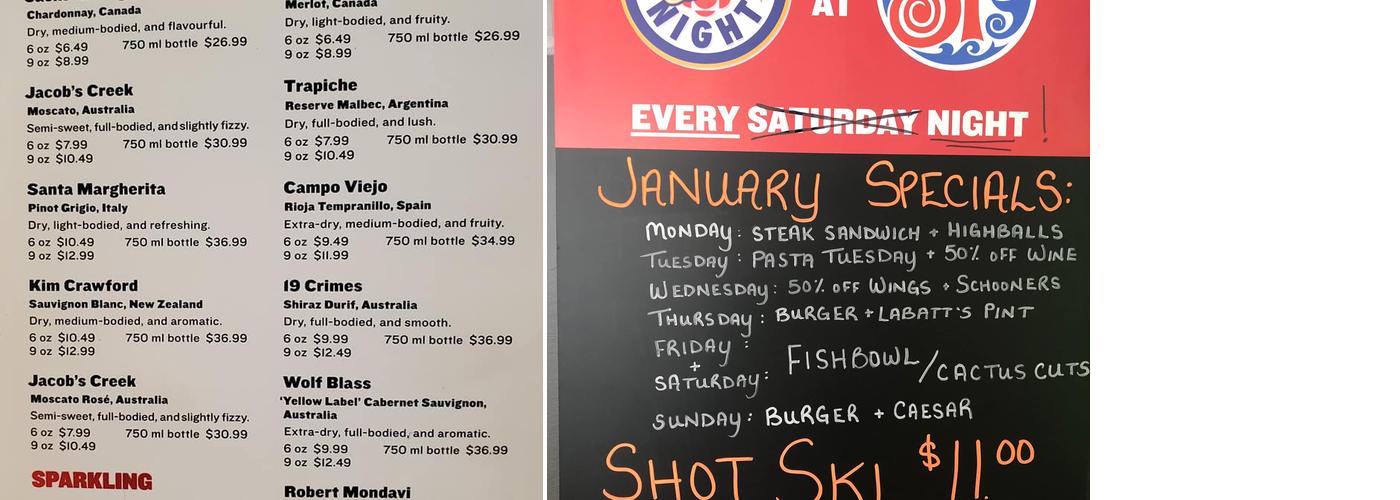 Chardonnay, Canada
Dry, medium-bodied, and flavourful.
6 oz $6.49 750 ml bottle $26.99
9 oz $8.99
Jacob's Creek
Moscato, Australia
Semi-sweet, full-bodied, and slightly fizzy.
6 oz $7.99 750 ml bottle $30.99
9 oz $10.49
Santa Margherita
Pinot Grigio, Italy
Dry, light-bodied, and refreshing.
6 oz $10.49 750 ml bottle $36.99
9 oz $12.99
Kim Crawford
Sauvignon Blanc, New Zealand
Dry, medium-bodied, and aromatic.
6 oz $10.49 750 ml bottle $36.99
9 oz $12.99
Jacob's Creek
Moscato Rosé, Australia
Semi-sweet, full-bodied, and slightly fizzy.
6 oz $7.99 750 ml bottle $30.99
9 oz $10.49
SPARKLING
Merlot, Canada
Dry, light-bodied, and fruity.
6 oz $6.49 750 ml bottle $26.99
9 oz $8.99
Trapiche
Reserve Malbec, Argentina
Dry, full-bodied, and lush.
6 oz $7.99 750 ml bottle $30.99
9 oz $10.49
Campo Viejo
Rioja Tempranillo, Spain
Extra-dry, medium-bodied, and fruity.
6 oz $9.49 750 ml bottle $34.99
9 oz $11.99
19 Crimes
Shiraz Durif, Australia
Dry, full-bodied, and smooth.
6 oz $9.99 750 ml bottle $36.99
9 oz $12.49
Wolf Blass
'Yellow Label' Cabernet Sauvignon,
Australia
Extra-dry, full-bodied, and aromatic.
6 oz $9.99 750 ml bottle $36.99
9 oz $12.49
Robert Mondavi
NIGHT
AT
EVERY SATURDAY NIGHT!
JANUARY SPECIALS:
MONDAY: STEAK SANDWICH + HIGHBALLS
TUESDAY: PASTA TUESDAY + 50% OFF WINE
WEDNESDAY: 50% OFF WINGS + SCHOONERS
THURSDAY: BURGER + LABATT'S PINT
FRIDAY :
+
SATURDAY: FISHBOWL/CACTUS CUTS
SUNDAY: BURGER + CAESAR
SHOT SKI $11.00